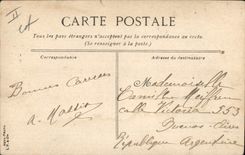 CARTE POSTALE
Tous les pays étrangers n'acceptent pas la correspondance au recto.
(Se renseigner à la poste.)
Correspondance
Adresse du destinataire
Mademoiselle
Camille
Bonnes
calle Victoria 353
A.
Buenos-Aires
République Argentine